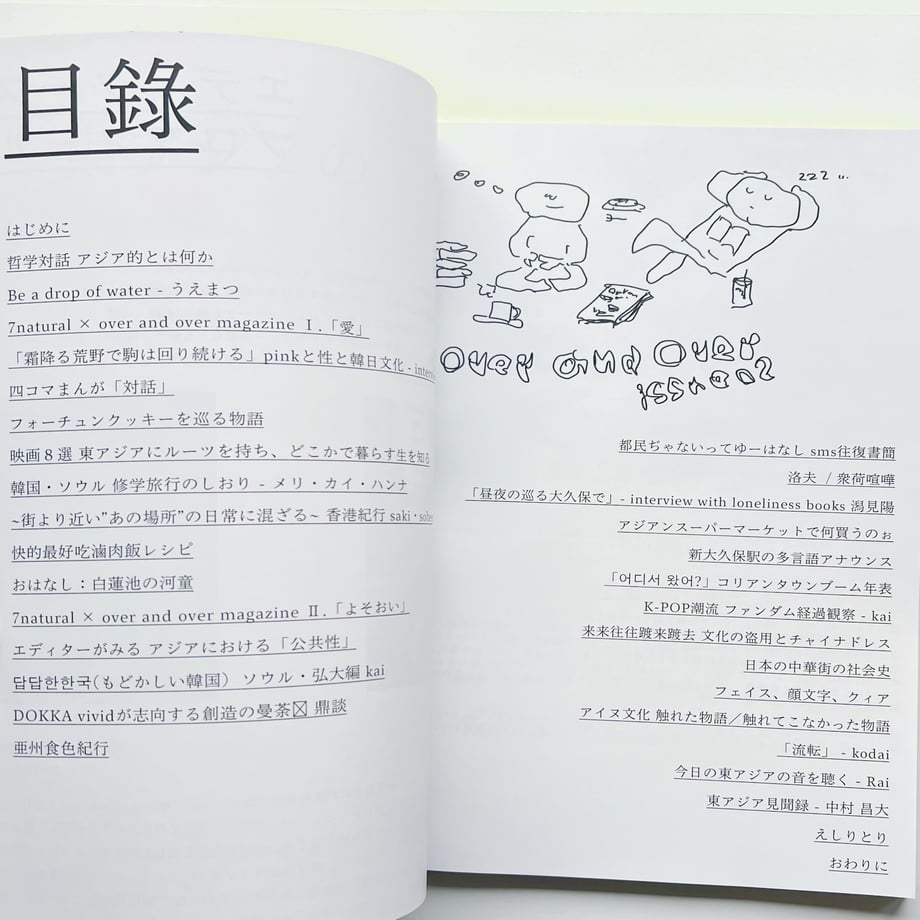 目錄
はじめに
哲学対話 アジア的とは何か
Be a drop of water - うえまつ
7natural × over and over magazine Ⅰ.「愛」
「霜降る荒野で駒は回り続ける」pinkと性と韓日文化 -
四コマまんが「対話」
フォーチュンクッキーを巡る物語
映画８選 東アジアにルーツを持ち、どこかで暮らす生を知る
韓国・ソウル 修学旅行のしおり - メリ・カイ・ハンナ
~街より近い”あの場所”の日常に混ざる~ 香港紀行 saki・
快的最好吃滷肉飯レシピ
おはなし：白蓮池の河童
7natural × over and over magazine Ⅱ.「よそおい」
エディターがみる アジアにおける「公共性」
답답한한국(もどかしい韓国) ソウル・弘大編 kai
DOKKA vividが志向する創造の曼荼☒ 鼎談
亜州食色紀行
zzz ..
over and over
issue02
都民ぢゃないってゆーはなし sms往復書簡
洛夫 / 衆荷喧嘩
「昼夜の巡る大久保で」- interview with loneliness books 潟見陽
アジアンスーパーマーケットで何買うのぉ
新大久保駅の多言語アナウンス
「어디서 왔어?」コリアンタウンブーム年表
K-POP潮流 ファンダム経過観察 - kai
来来往往踱来踱去 文化の盗用とチャイナドレス
日本の中華街の社会史
フェイス、顔文字、クィア
アイヌ文化 触れた物語／触れてこなかった物語
「流転」 - kodai
今日の東アジアの音を聴く - Rai
東アジア見聞録 - 中村 昌大
えしりとり
おわりに